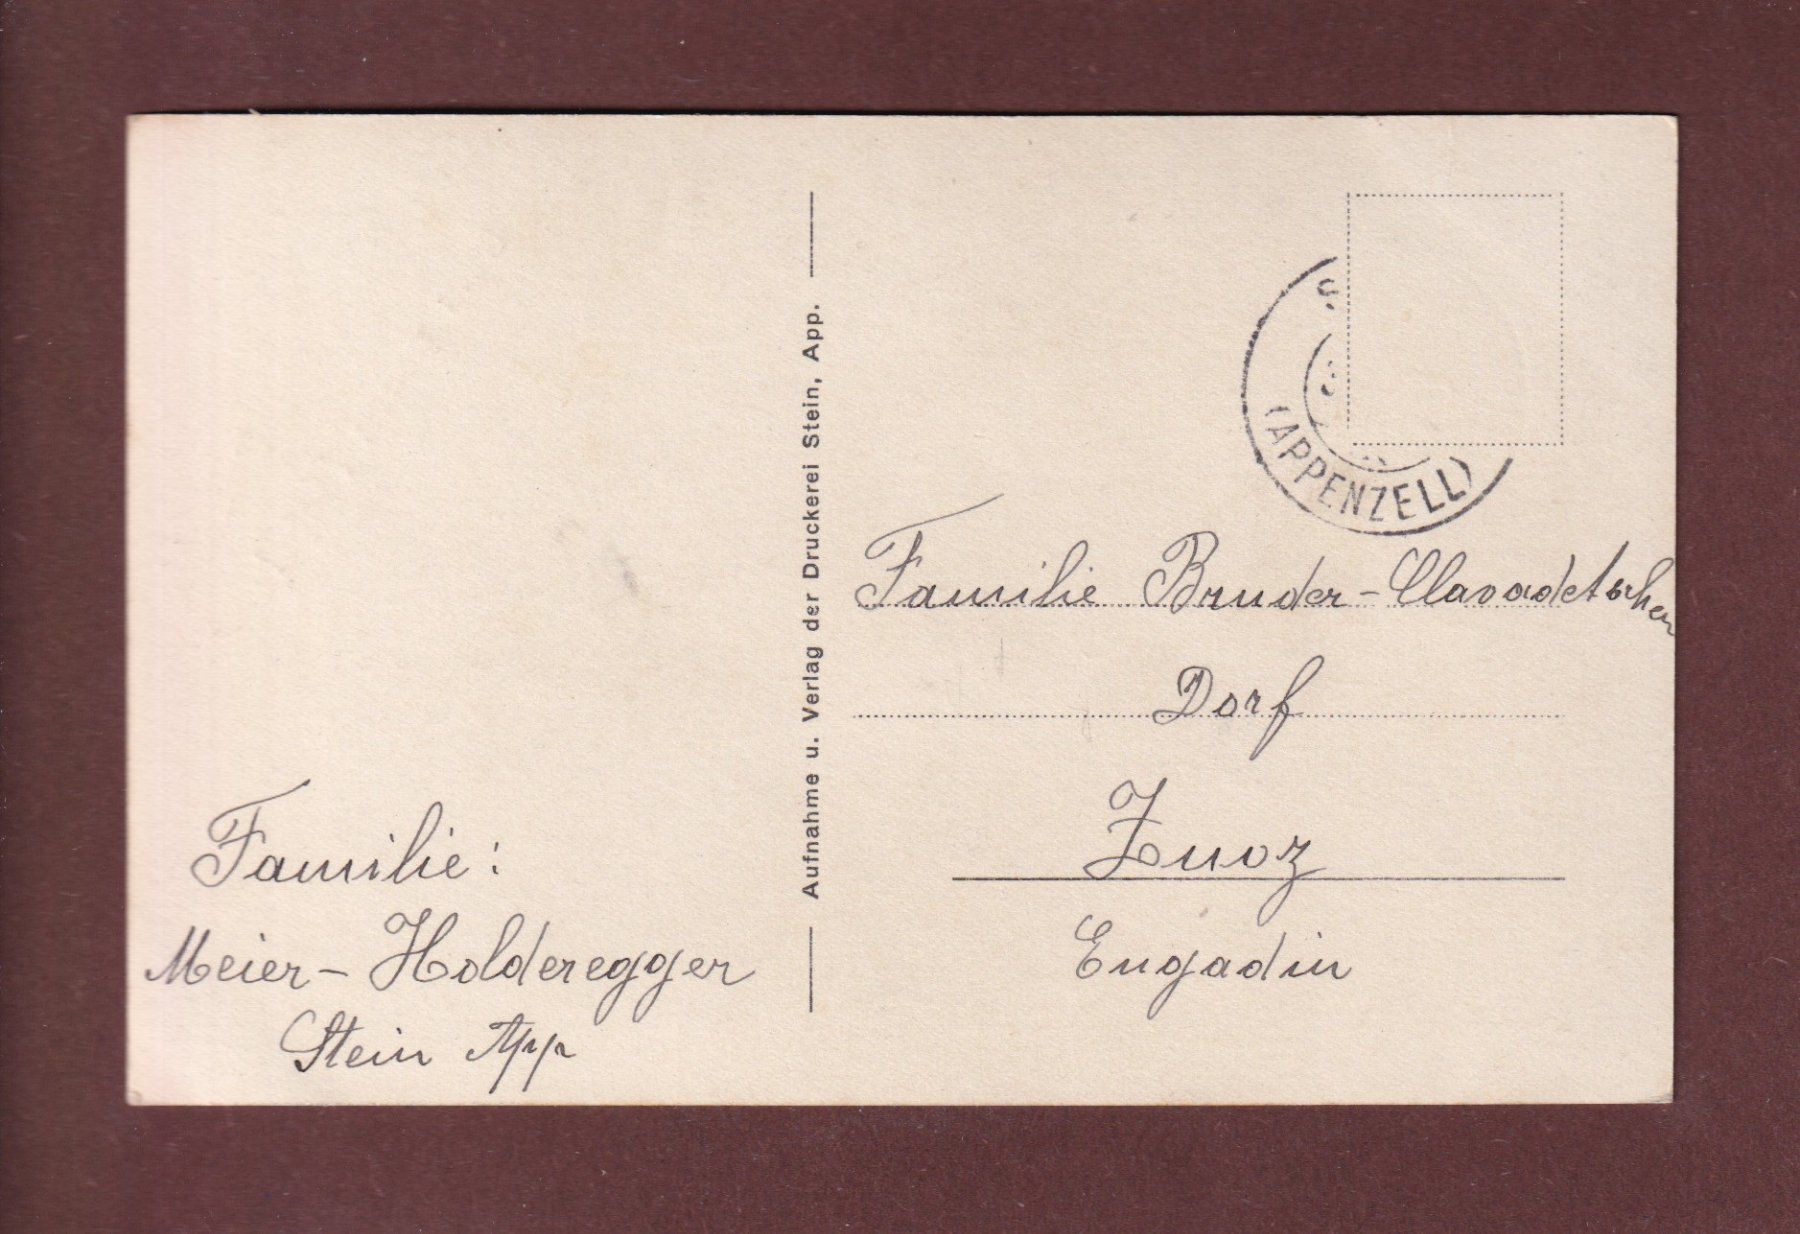 Familie:
Meier-Holderegger
Stein App
Aufnahme u. Verlag der Druckerei Stein, App.
(APPENZELL)
Familie Bruder-Clavadetscher
Dorf
Zuoz
Engadin